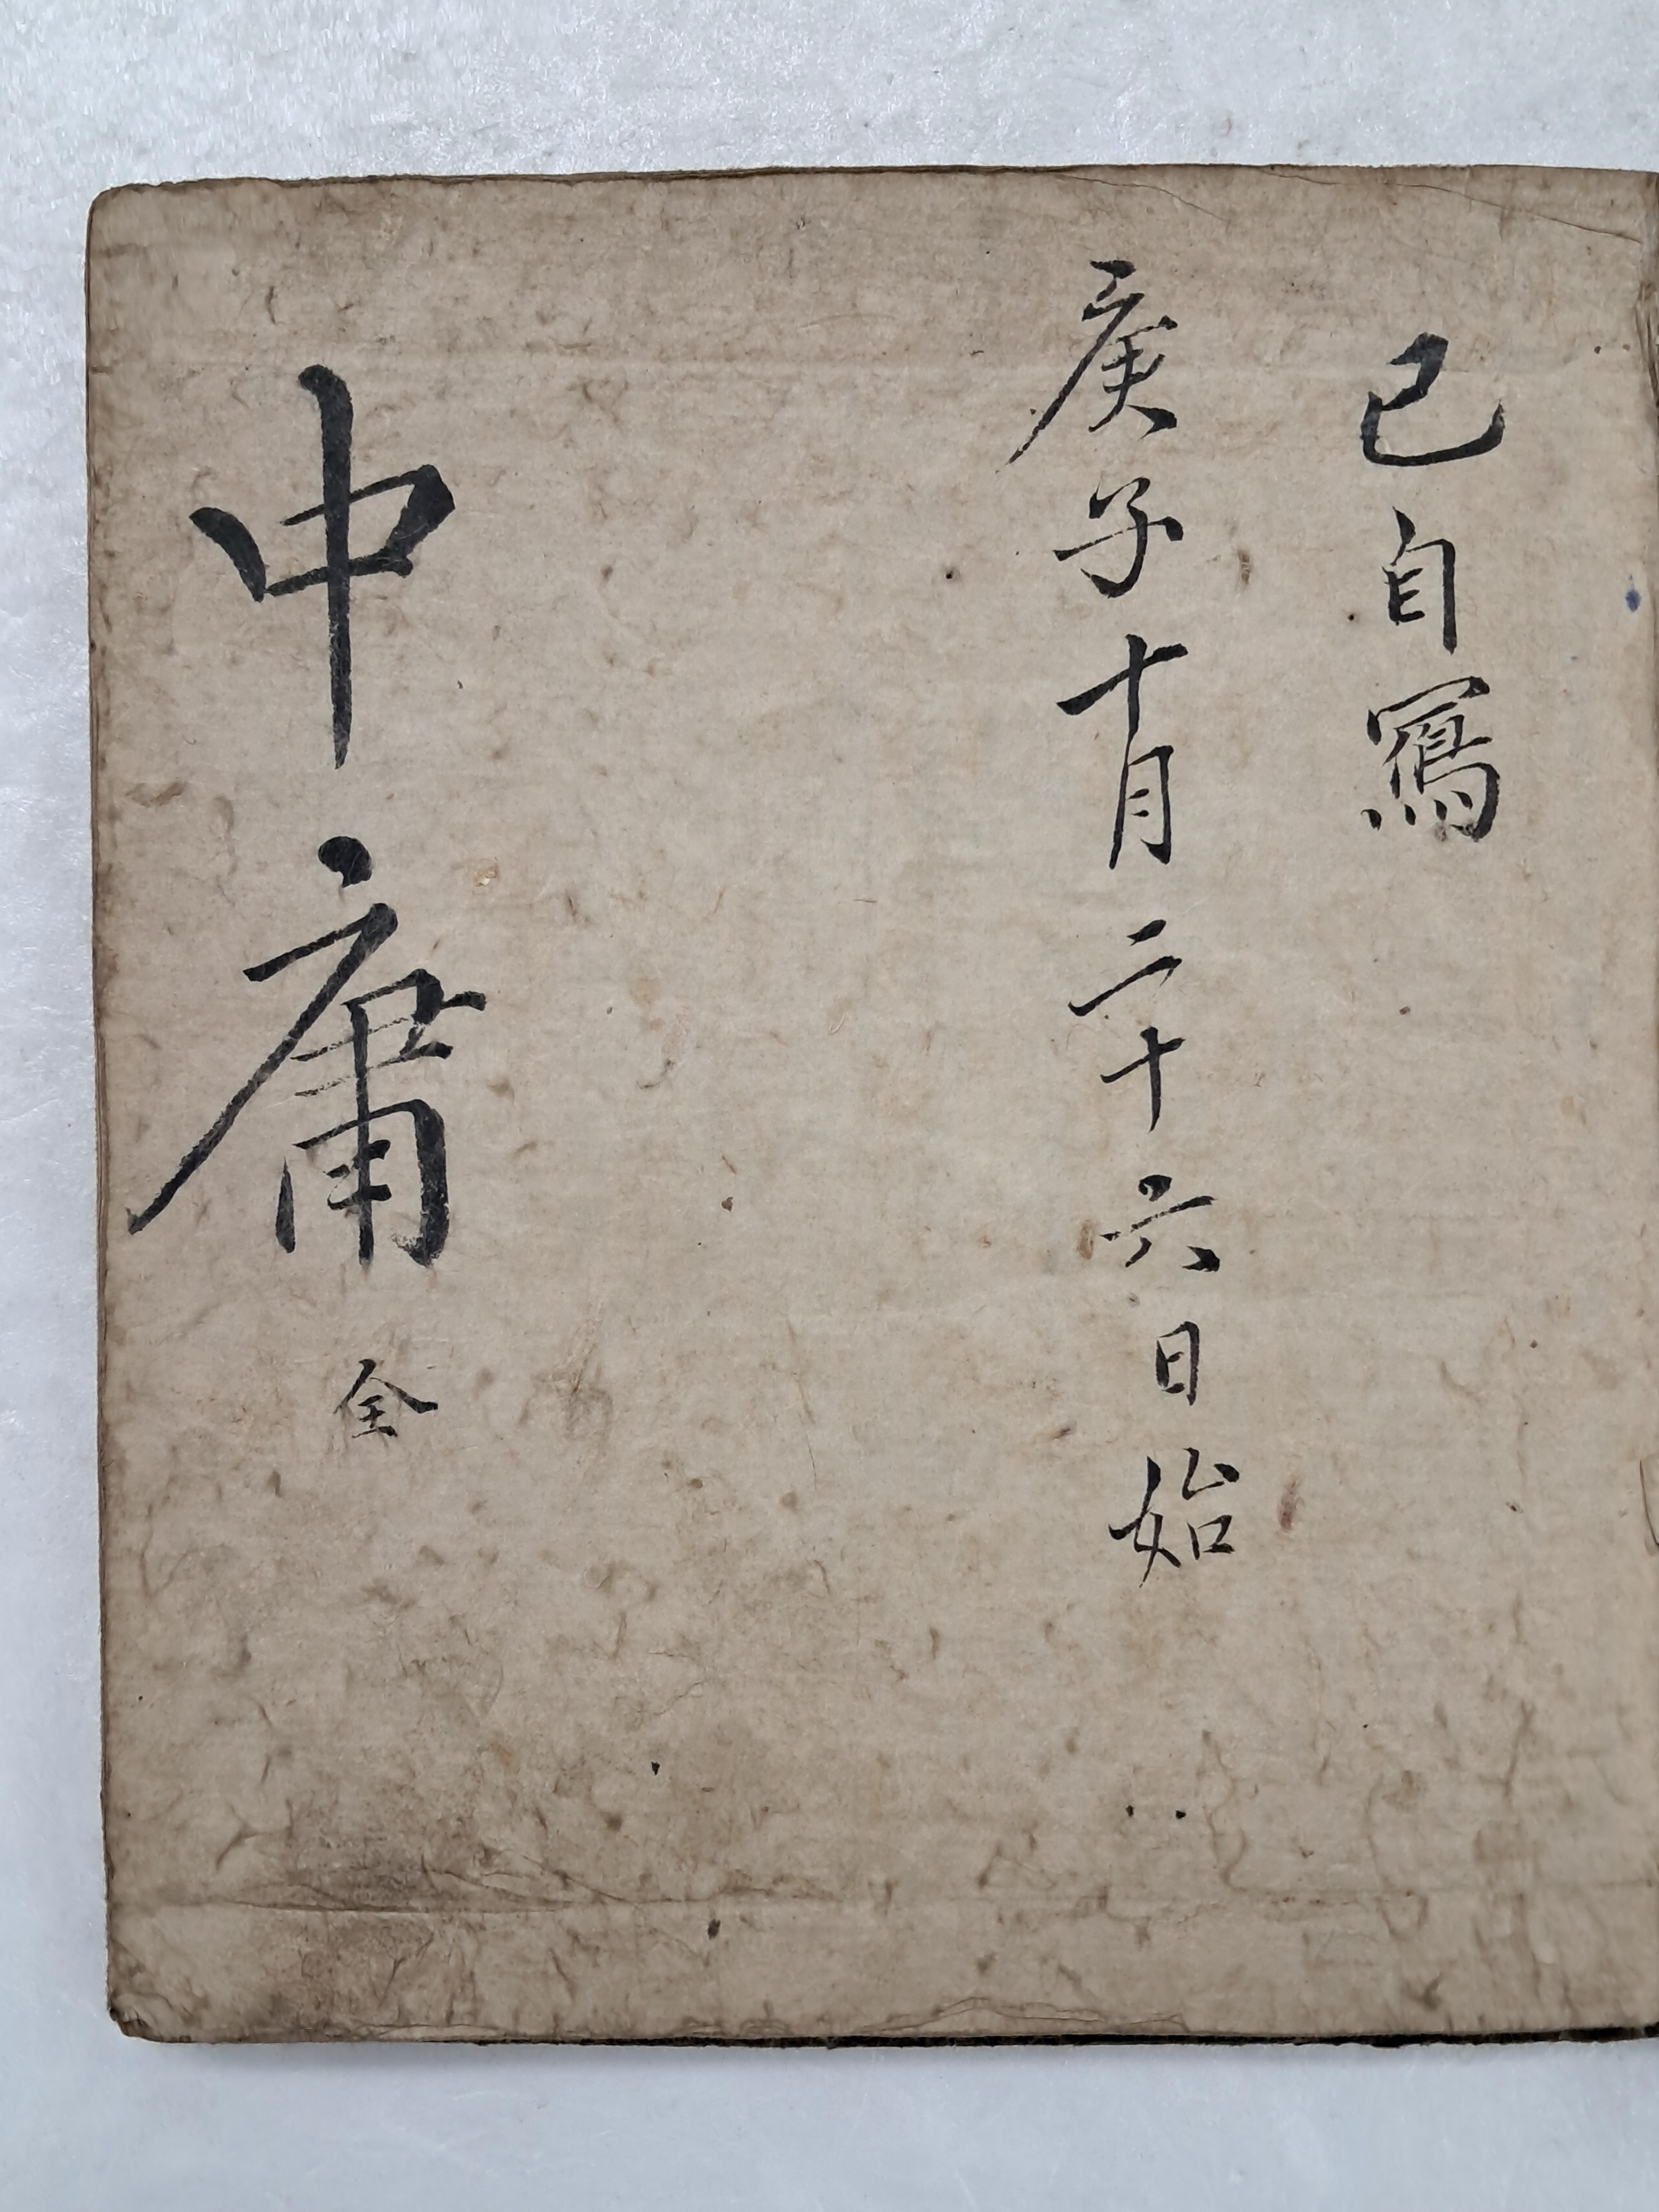 己自寫
庚子十月二十六日始
中庸全